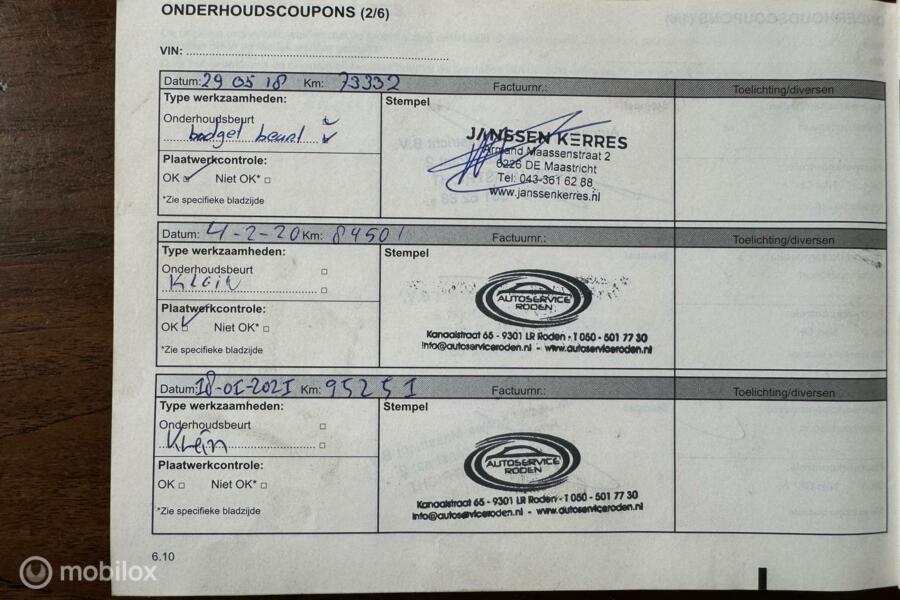 ONDERHOUDSCOUPONS (2/6)
VIN:
Datum: 29 05 18 Km: 73332 Factuurnr.: Toelichting/diversen
Type werkzaamheden: Stempel
Onderhoudsbeurt
budget beurt
Plaatwerkcontrole:
OK Niet OK*
*Zie specifieke bladzijde
JANSSEN KERRES
Armand Maassenstraat 2
6226 DE Maastricht
Tel: 043-361 62 88
www.janssenkerres.nl
Datum: 4-2-20 Km: 84501 Factuurnr.: Toelichting/diversen
Type werkzaamheden: Stempel
Onderhoudsbeurt
Klein
Plaatwerkcontrole:
OK Niet OK*
*Zie specifieke bladzijde
AUTOSERVICE
RODEN
Kanaalstraat 65 - 9301 LR Roden - T 050 - 501 77 30
info@autoserviceroden.nl - www.autoserviceroden.nl
Datum: 18-01-2021 Km: 95251 Factuurnr.: Toelichting/diversen
Type werkzaamheden: Stempel
Onderhoudsbeurt
Klein
Plaatwerkcontrole:
OK Niet OK*
*Zie specifieke bladzijde
AUTOSERVICE
RODEN
Kanaalstraat 65 - 9301 LR Roden - T 050 - 501 77 30
info@autoserviceroden.nl - www.autoserviceroden.nl
6.10
mobilox